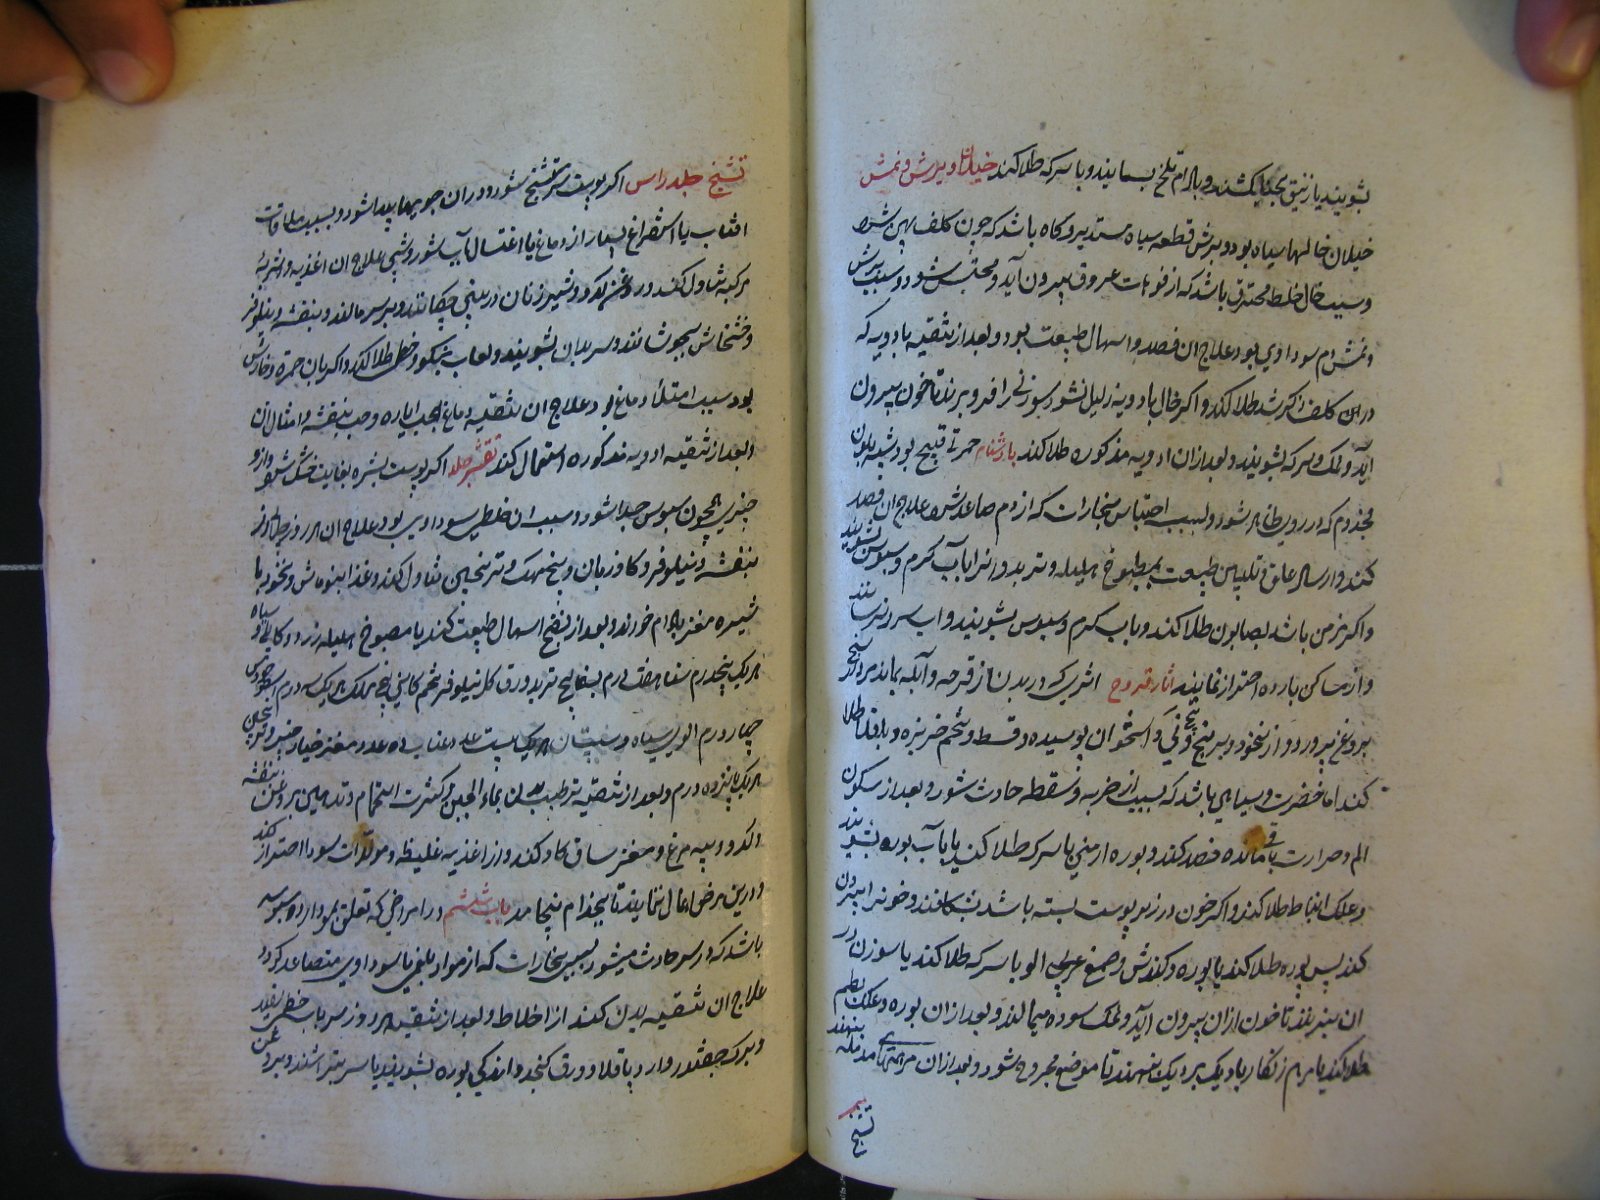 بشویند یا زیبق بکشند و بادام تلخ بسایند و با سرکه طلا کنند خیلان و برش و نمش
خیلان خالهاء سیاه بود و برش قطعه سیاه مستدیر و کاه باشد که چون کلف پهن شود
و سبب خال خلط محترق باشد که از فوهات عروق بیرون آید و محتبس شود و سبب برش
و نمش دم سوداوی بود علاج ان فصد و اسهال طبیعت بود و بعد از تنقیه بادویه که
در کلف ذکر شد طلا کنند و اکر خال بادویه زایل نشود سوزنی را فرو برند تا خون بیرون
آید و نمک و سرکه بشویند و بعد از ان ادویه مذکوره طلا کنند بادشنام حمرتی قبیح بود شبیه بلون
مجذوم که در روی ظاهر شود و بسبب احتباس بخارات که از دم صاعد شود علاج ان فصد
کنند و ارسال علق و تلیین طبیعت بمطبوخ هلیله و تربد و انرا بآب کرم و سبوس بشویند
و اکر مزمن باشد بصابون طلا کنند و بآب کرم و سبوس بشویند و آب سرد نرسانند
و از مساکن بارده احتراز نمایند اثار قروح اثری که در بدن از قرحه و آبله بماند مردارسنج
بروغن پرورد و آرد نخود و برنج و بیخ نی و استخوان پوسیده و قسط و تخم خربزه و باقلا طلا
کنند اما خضرت و سیاهی باشد که بسبب از ضربه و سقطه حادث شود و بعد از سکون
الم و حرارت باقی مانده فصد کنند و بوره ارمنی با سرکه طلا کنند یا بآب بوره بشویند
و علک انباط طلا کنند و اکر خون در زیر پوست بسته باشد بشکافند و خونرا بیرون
کنند پس بوره طلا کنند یا بوره و کندش و صمغ عربی الو با سرکه طلا کنند یا سوزن در
ان بزنند تا خون از ان بیرون آید و نمک سوده میمالند و بعد از ان بوره و علک بطم
طلا کنند یا مرهم زنکار یا دیک بر دیک بنهند تا موضع مجروح شود و بعد از ان مرهمهای مدمله بنهند
تشنج
تشنج جلد راس اکر پوست سر متشنج شود و در ان جویها پیدا شود و بسبب ملاقات
افتاب یا استفراغ بسیار از دماغ یا اغتسال بآب شور و شبی علاج ان اغذیه و اشربهٔ
مرطبه تناول کنند و روغن کدو و شیر زنان در بینی چکانند و بر سر مالند و بنفشه و نیلوفر
و خشخاش بجوشانند و سر بدان بشویند و لعاب بنکو و خطمی طلا کنند و اکر با ان حمره و خارش
بود سبب امتلاء دماغ بود علاج ان تنقیه دماغ بحب ایاره و حب بنفشه و امثال آن
و بعد از تنقیه ادویه مذکوره استعمال کنند تقشر جلد اکر پوست بشره بغایت خشک شود و از و
چیزی همچون سبوس جدا شود و سبب ان خلطی سوداوی بود علاج ان هر روز جلاب از
بنفشه و نیلوفر و کاو زبان و بیخ مهک و ترنجبین تناول کنند و غذا بنوماش و نخود با
شیره مغز بادام خورند و بعد از نضج اسهال طبیعت کنند یا مطبوخ هلیله زرد و کابلی و سیاه
هر یک پنجدرم سنا هفت درم بسفایج تربد ورق کل نیلوفر تخم کاسنی بیخ مهک هر یک سه درم اسطوخودوس
چهار درم الوی سیاه و سپستان هر یک بیست عدد عناب ده عدد مغز خیار چنبر و ترنجبین
هر یک پانزده درم و بعد از تنقیه ترطیب بدن بماء الجبن و کثرت استحمام و تدهین بروغن بنفشه
و کدو و پیه مرغ و مغز ساق کاو کنند و از اغذیه غلیظه و مولدات سودا احتراز کنند
و درین مرض اهمال ننمایند تا بجذام نینجامد باب ششم در امراضی که تعلق بمو دارد سبوسه
باشد که در سر حادث میشود بسبب بخارات که از مواد بلغمی یا سوداوی متصاعد کردد
علاج ان تنقیه بدن کنند از اخلاط و بعد از تنقیه هر روز سر بآب خطمی سفید
و برک چغندر و ارد باقلا و ورق کنجد و اندکی بوره بشویند یا سر بتراشند و بروغن